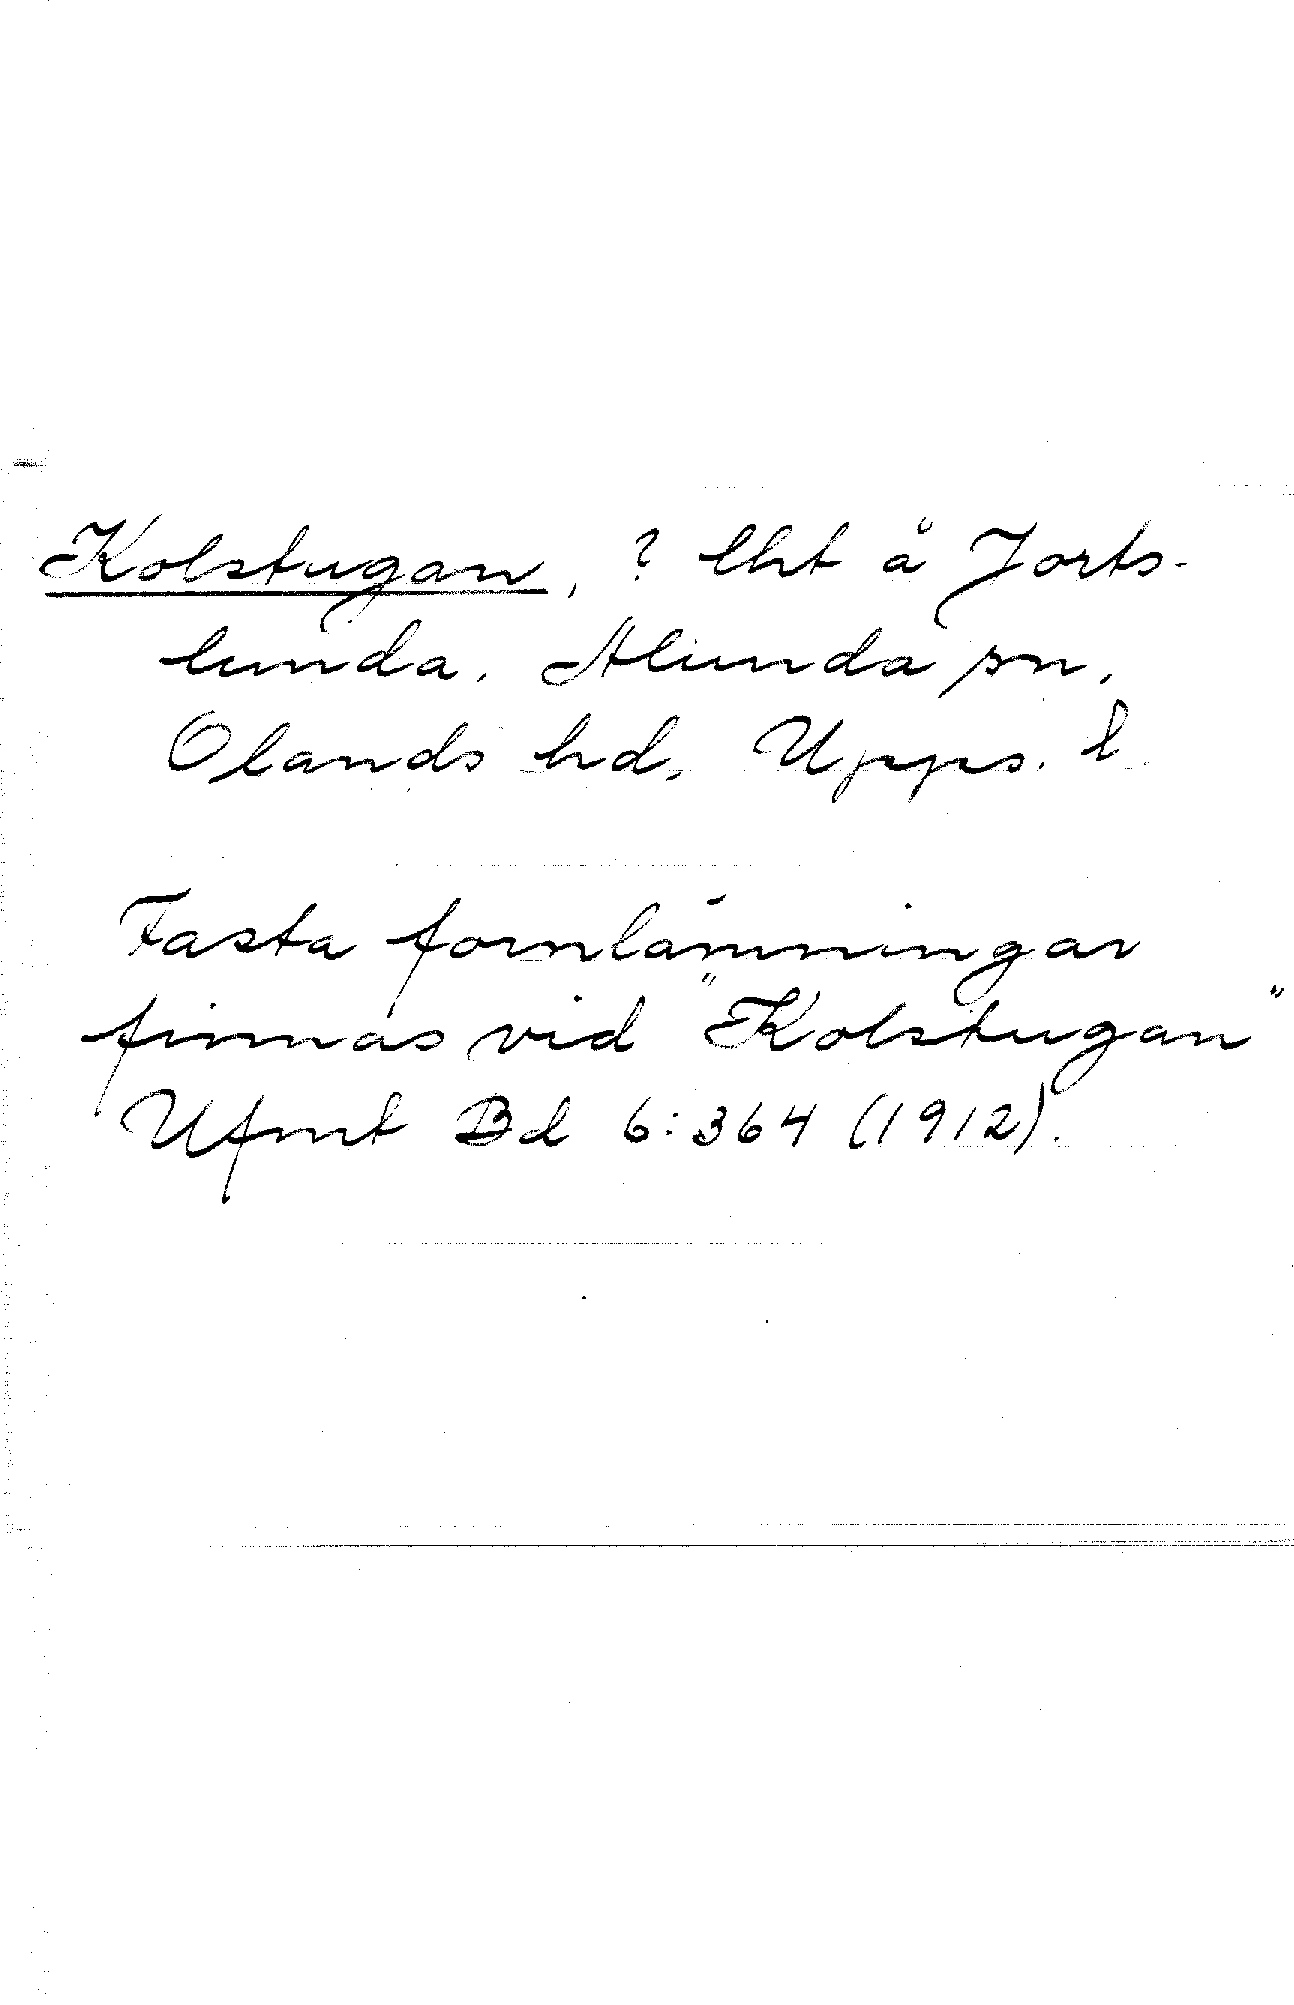 Kolstugan, ? lht å Jorts-
lunda. Alunda sn,
Olands hd, Upps. l
Fasta fornlämningar
finnas vid "Kolstugan"
Ufmt Bd 6:364 (1912).